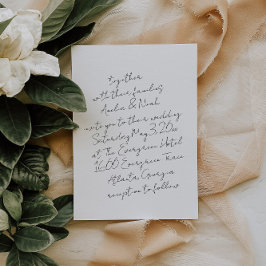 together
with their families
Kaelin & Noah
invite you to their wedding
Saturday May 3, 20xx
at the Evergreen Hotel
1660 Evergreen Trace
Atlanta, Georgia
reception to follow